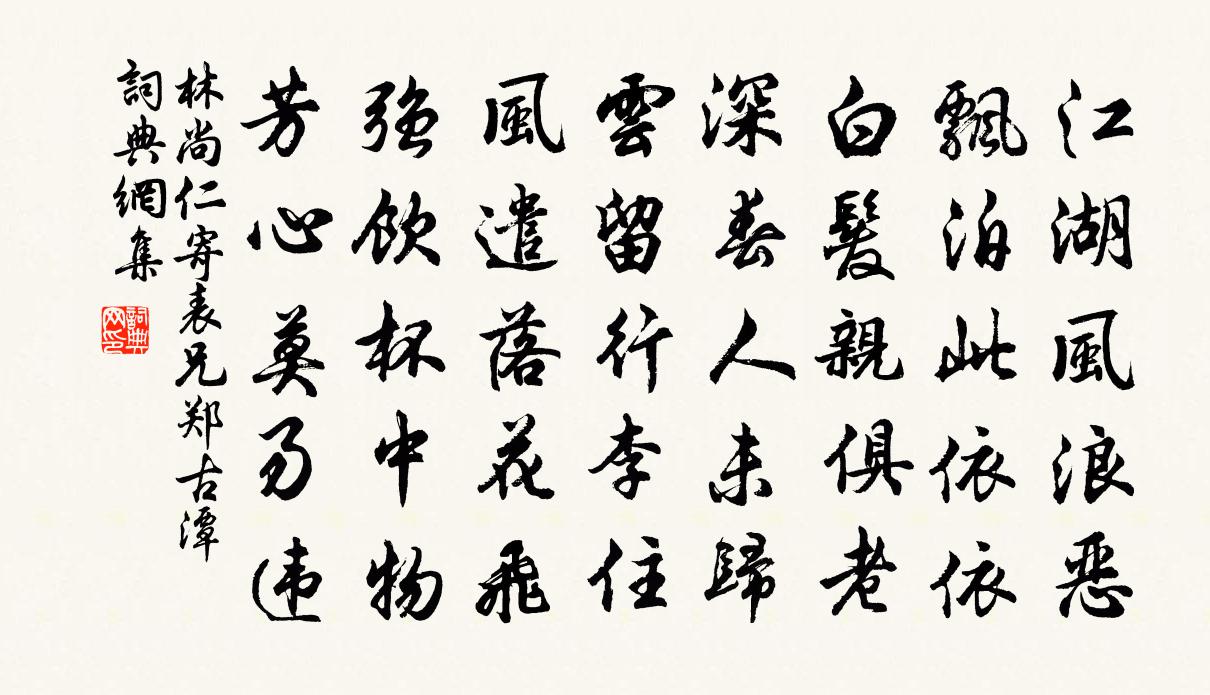 江湖風浪惡
飄泊此依依
白髮親俱老
深春人未歸
雲留行李住
風遣落花飛
強飲杯中物
芳心莫易違
林尚仁寄表兄郑古潭
詞典網集
詞典网印